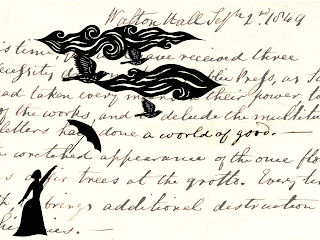 Walton Hall Septr 2nd 1849
is time, have received three
ecessity, the Press, as
ad taken every their power, to
of the works, and delude the multitu
letters have done a world of good.—
wretched appearance of the once flo
after trees at the grotto. Every ti
brings additional destruction